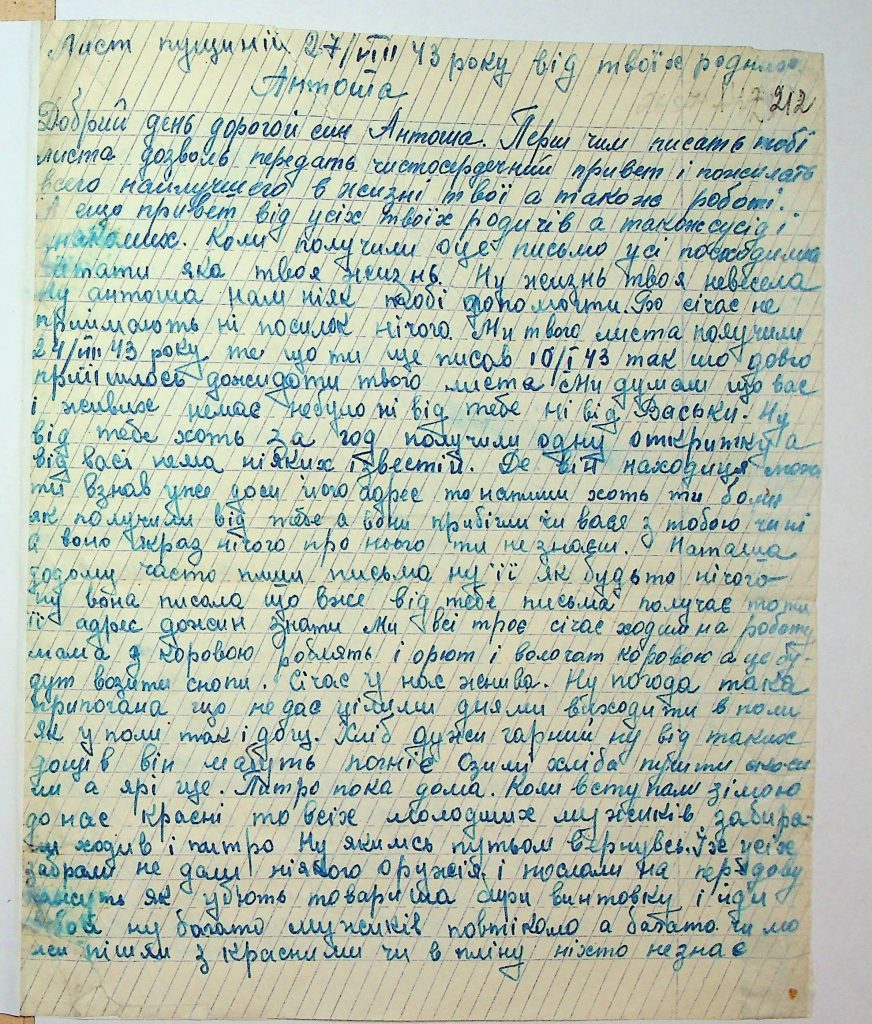 Лист пущиний 27/VIII 43 року від твоїх родних.
Антоша
212
Добрий день дорогой син Антоша. Перш чим писать тобі
листа дозволь передать чистосердечний привет і пожилать
всего наилучшего в жизні твої а також роботі.
А єщо привет від усіх твоїх родичів а також сусіді
знакомих. Коли получили оце письмо усі посходилися
читати яка твоя жизнь. Ну жизнь твоя невесела
Ну антоша нам ніяк тобі допомогти. Бо січас не
приймають ні посилок нічого. Ми твого листа получили
24/VIII 43 року те що ти ще писав 10/I 43 так шо довго
прийшлось дожидати твого листа Ми думали що вас
і живих немає небуло ні від тебе ні від Васьки. Ну
від тебе хоть за год получили одну откритку а
від васі нема ніяких ізвестій. Де він находиця може
ти взнав уже доси його адрес то напиши хоть ти боми
як получили від тебе а вони прибігли чи вася з тобою чи ні
а воно якраз нічого про нього ти не знаєш. Наташа
додому часто пиши письма ну її як будьто нічого
ну вона писала що вже від тебе письма получає то ти
її адрес дожин знати Ми всі троє січас ходим на роботу
мама з коровою роблять і орют і волочат коровою а це бу-
дут возити снопи. Січас у нас жнива. Ну погода така
припогана що не дає цілими днями виходити в поли
як у полі так і дощ. Хліб дужи гарний ну від таких
дощів він мабуть погніє Озими хліба пошти скоси
ли а ярі ще. Питро пока дома. Коли вступали зімою
до нас красні то всіх молодших мужиків забира-
ли ходив і питро Ну якимсь путьом вернувсь. Їх усіх
забрали не дали ніякого оружія і послали на передову
кажуть як убють товариша бири винтовку і йди
в бой ну багато мужиків повтікало а багато чи мо
же пішли з красними чи в пліну ніхто незнає